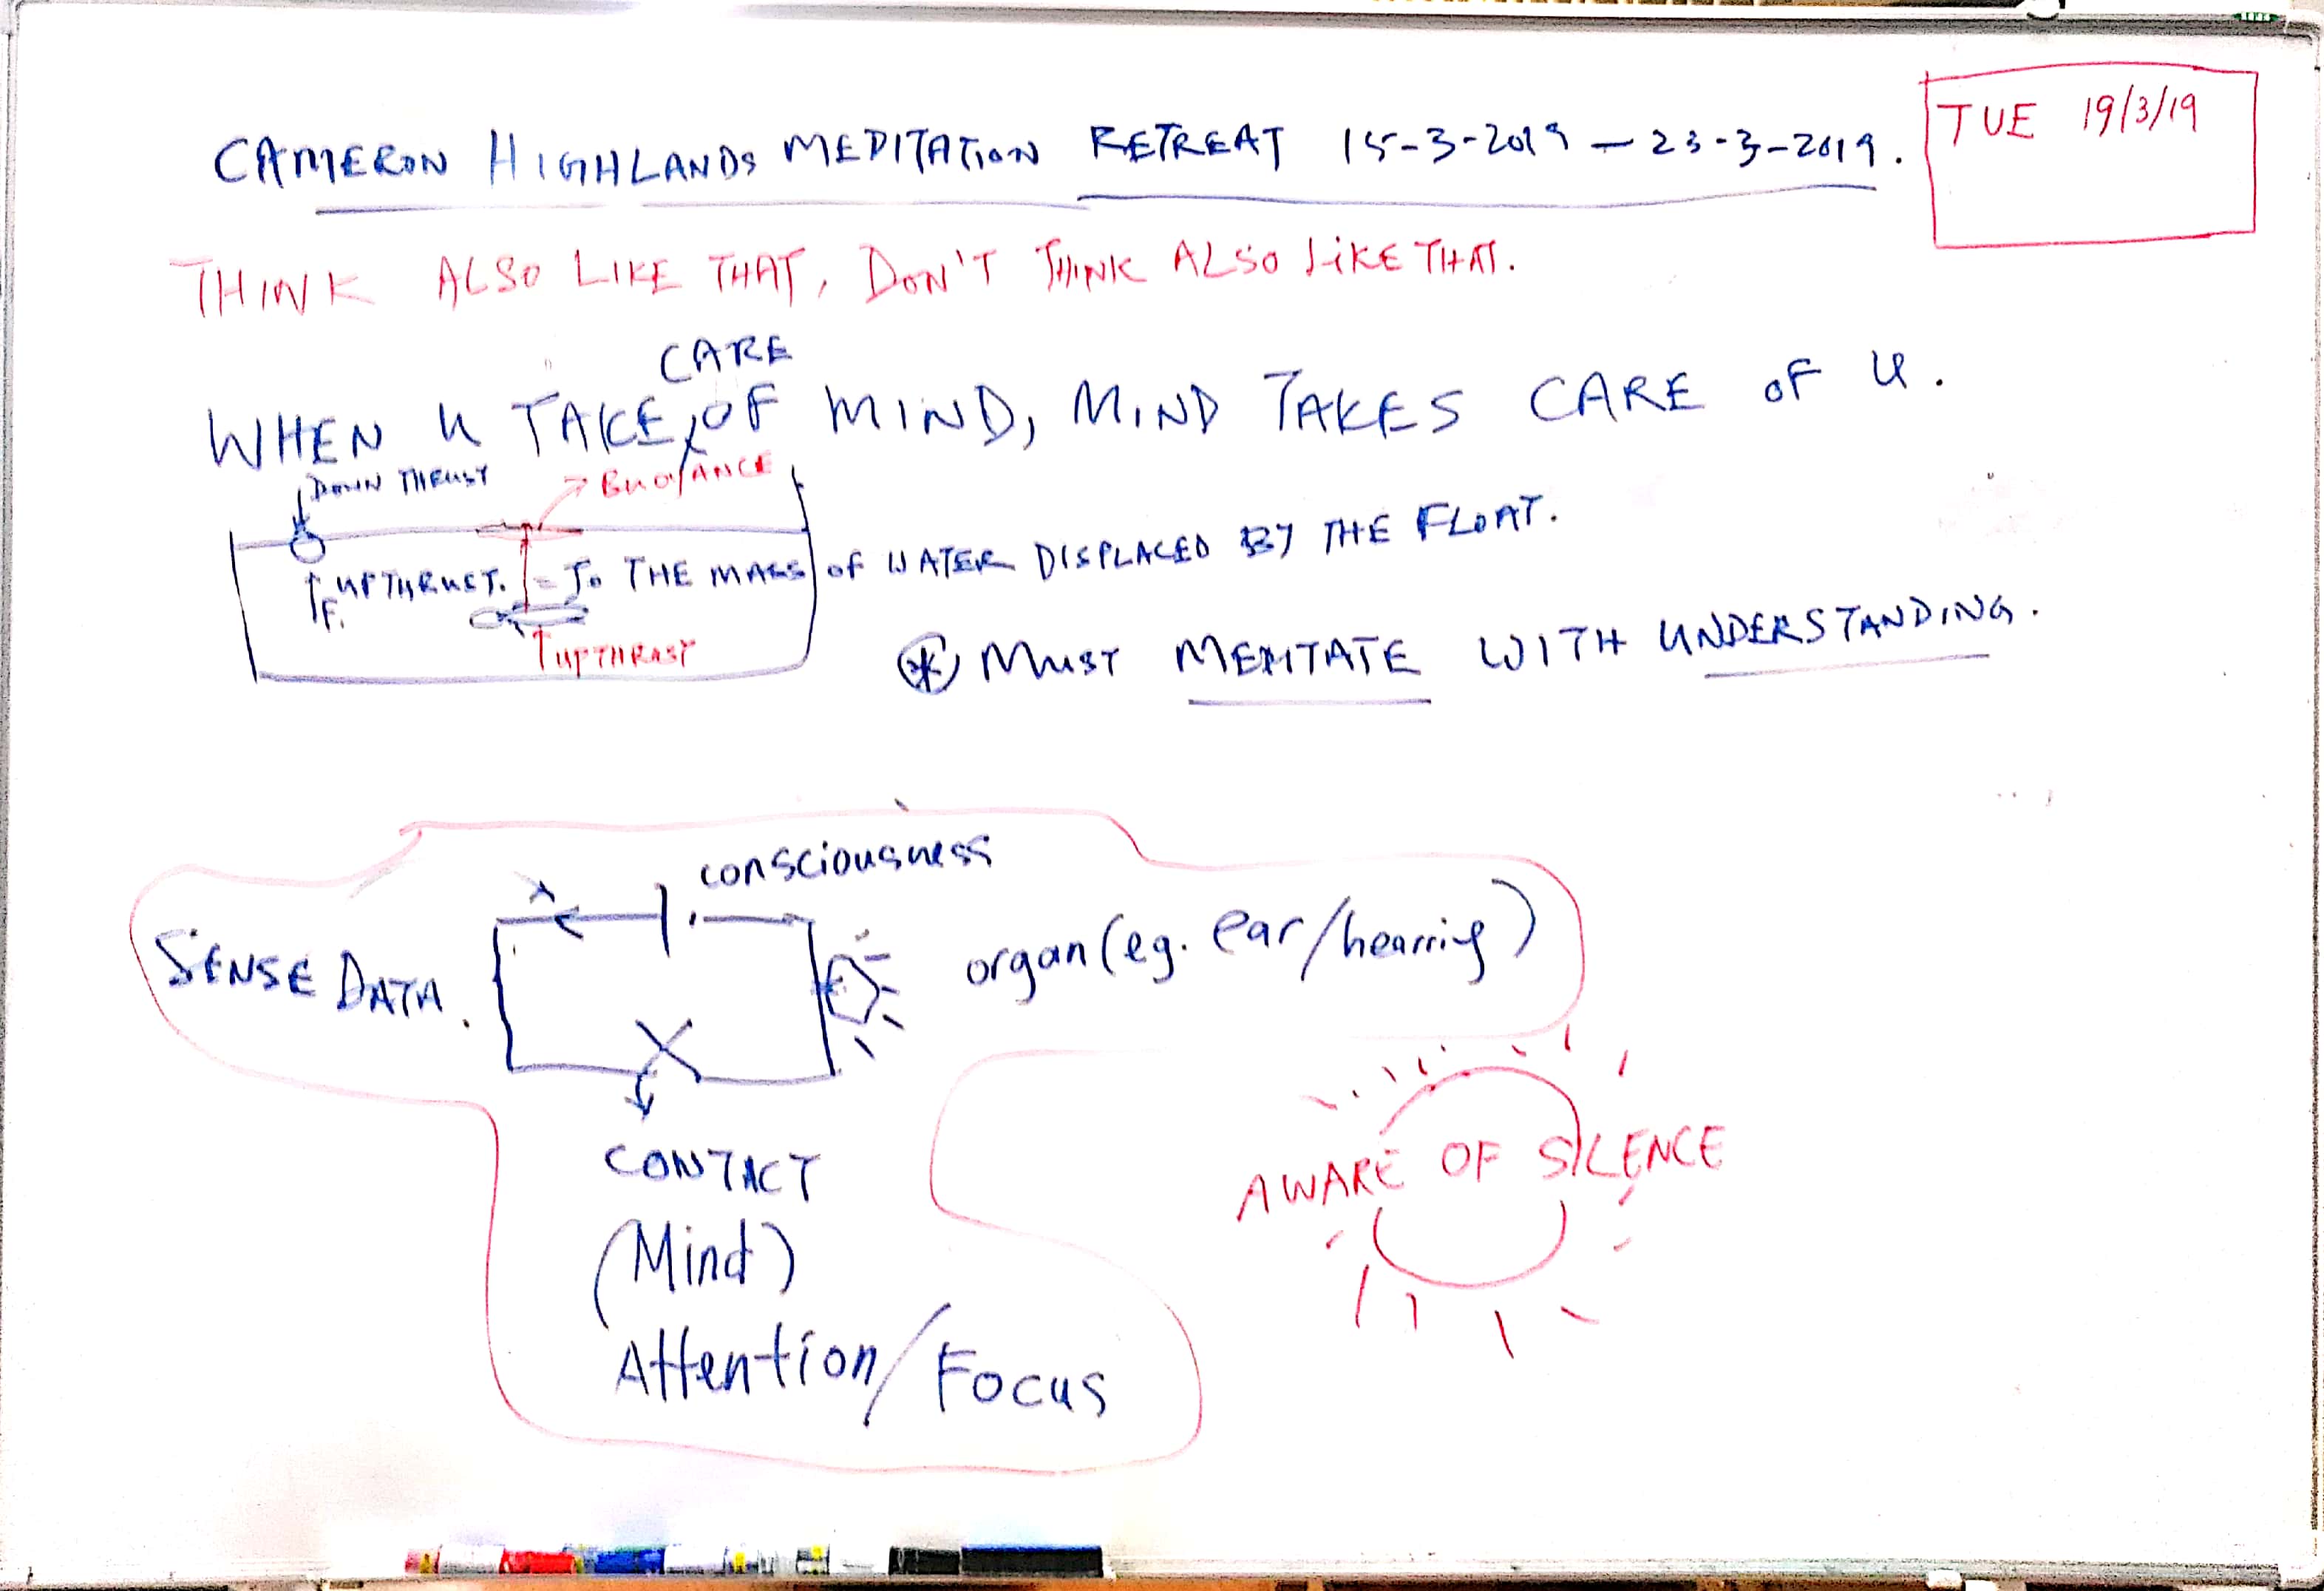 CAMERON HIGHLANDS MEDITATION RETREAT 15-3-2019 – 23-3-2019.
TUE 19/3/19
THINK ALSO LIKE THAT, DON'T THINK ALSO LIKE THAT.
CARE
WHEN U TAKE OF MIND, MIND TAKES CARE OF U.
DOWN THRUST
BUOYANCE
UPTHRUST. = TO THE MASS OF WATER DISPLACED BY THE FLOAT.
F.
UPTHRUST
* MUST MEDITATE WITH UNDERSTANDING.
consciousness
SENSE DATA.
organ (eg. ear/hearing)
CONTACT
(Mind)
Attention/Focus
AWARE OF SILENCE